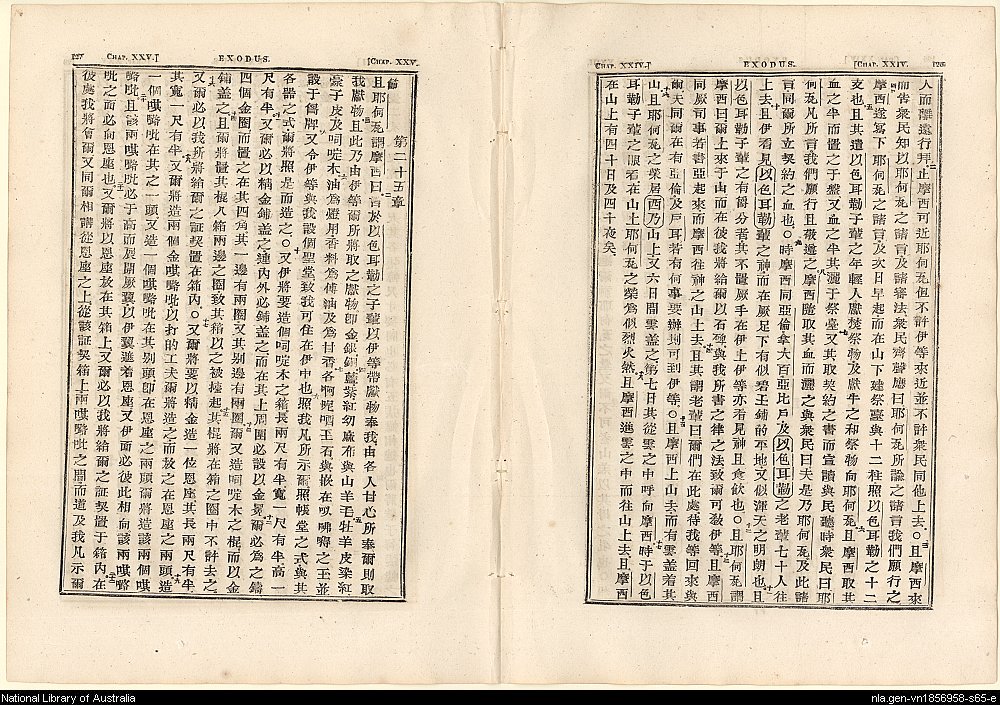 CHAP. XXIV.]
EXODUS.
[CHAP. XXIV.
人而離遠行拜止摩西可近耶何瓦但不許伊等來近並不許衆民同他上去○且摩西來
而告衆民知以耶何瓦之諸言及諸審法衆民齊聲應曰耶何瓦所諭之諸言我們願行之
摩西遂寫下耶何瓦之諸言及次日早起而在山下建祭臺與十二柱照以色耳勒之十二
支也且其遣以色耳勒子輩之年輕人獻焚祭物及獻牛之和祭物向耶何瓦且摩西取其
血之半而置之于盤又血之半其灑于祭臺又其取契約之書而宣讀與民聽時衆民曰耶
何瓦凡所言我們願行且敬遵之摩西隨取其血而灑之與衆民曰夫是乃耶何瓦及此諸
言同爾所立契約之血也○時摩西同亞倫拿大百亞比戶及以色耳勒之老輩七十人往
上去且伊看見以色耳勒輩之神而在厥足下有似碧玉鋪的平地又似渾天之明朗也且
以色耳勒子輩之有爵分者其不置厥手在伊上伊等亦看見神且食飲也○且耶何瓦謂
摩西曰爾上來于山而在彼我將給爾以石碑與我所書之律之法致爾可敎伊等且摩西
同厥司事若書亞起來而摩西往神之山上去且其謂老輩曰爾們在此處待我等回來與
爾夫同爾在有亞倫及戶耳若有何事要辦則可到伊等○且摩西上山去而有雲蓋着其
山且耶何瓦之榮居西乃山上又六日間雲蓋之第七日其從雲之中呼向摩西時于以色
耳勒子輩之眼看在山上耶何瓦之榮爲似烈火然且摩西進雲之中而往山上去且摩西
在山上有四十日及四十夜矣
CHAP. XXV.]
EXODUS.
[CHAP. XXV.
第二十五章
且耶何瓦謂摩西曰言於以色耳勒之子輩以伊等帶獻物奉我由各人甘心所奉爾則取
我獻物且此乃由伊等爾所將取之獻物卽金銀銅藍紫紅幼麻布與山羊毛牡羊皮染紅
皮及啝啶木油爲燈用香料爲傅油及爲甘香各啊玉石與嵌在之玉並
設于胷牌又令伊等與我設個聖堂致我可住在伊中也照我凡所示爾照帳堂之式與其
各器之式爾將照是而造之○又伊將要造個啝啶木之箱長兩尺有半寬一尺有半高一
尺有半又爾必以精金鋪蓋之連內外必鋪蓋之而在其上周圍必設以金冕爾必爲之鑄
四個金圈而置之在其四角其一邊有兩圈又其別邊有兩圈爾又造啝啶木之棍而以金
鋪蓋之且爾將置其棍入箱兩邊之圈致其箱以之被擡起其棍將在箱之圈中不許去之
又爾必以我所將給爾之証契置在箱內○又爾將要以精金造一位恩座其長兩尺有半
其寬一尺有半又爾將造兩個金㖷㘉吡以打的工夫爾將造之而放之在恩座之兩頭造
一個㖷㘉吡在其之一頭又造一個㖷㘉吡在其別頭卽在恩座之兩頭爾將造該兩個㖷
㘉吡且該兩㖷㘉吡必于高而展開厥翼以伊翼遮着恩座又伊面必彼此相向該兩㖷㘉
吡之面必向恩座也又爾將以恩座放在其箱上又爾必以我將給爾之証契置于箱內在
彼處我將會爾又同爾相講從恩座之上從該証契箱上兩㖷㘉吡之間而道及我凡示爾
National Library of Australia
nla.gen-vn1856958-s65-e